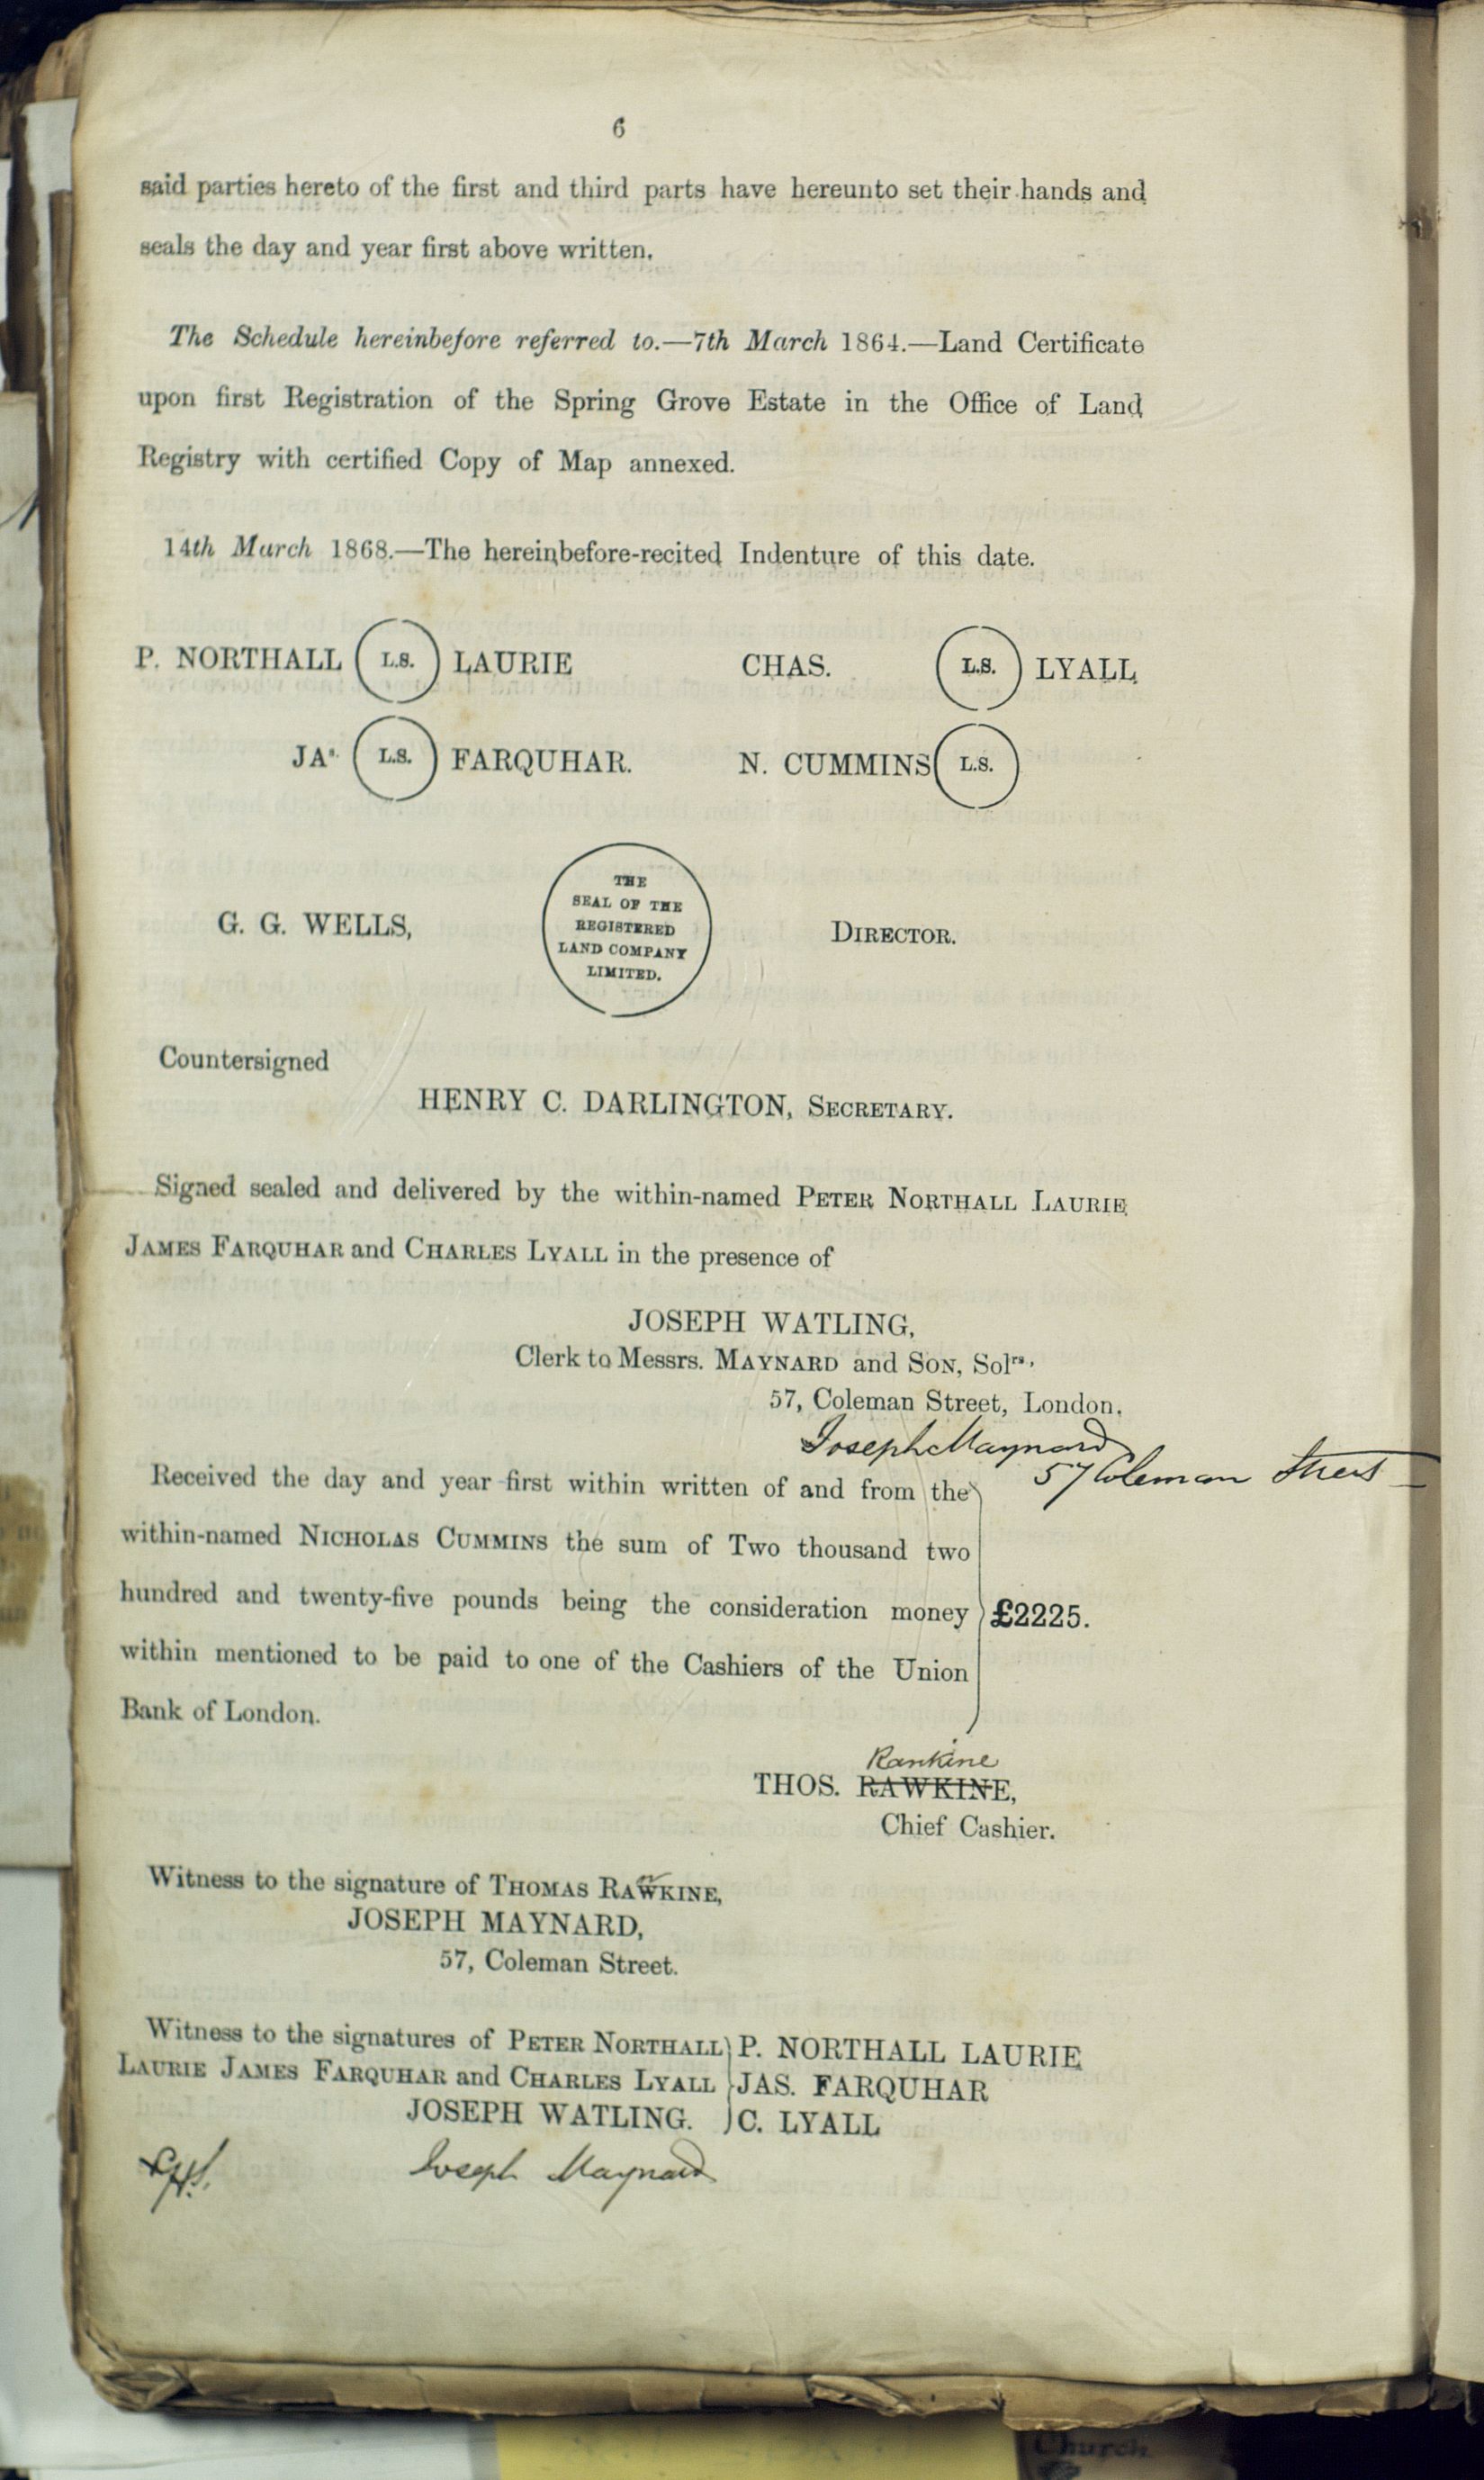 6
said parties hereto of the first and third parts have hereunto set their hands and
seals the day and year first above written.
The Schedule hereinbefore referred to.—7th March 1864.—Land Certificate
upon first Registration of the Spring Grove Estate in the Office of Land
Registry with certified Copy of Map annexed.
14th March 1868.—The hereinbefore-recited Indenture of this date.
P. NORTHALL L.S. LAURIE CHAS. L.S. LYALL
JAs. L.S. FARQUHAR. N. CUMMINS L.S.
THE
SEAL OF THE
REGISTERED
LAND COMPANY
LIMITED.
G. G. WELLS, DIRECTOR.
Countersigned
HENRY C. DARLINGTON, SECRETARY.
Signed sealed and delivered by the within-named PETER NORTHALL LAURIE
JAMES FARQUHAR and CHARLES LYALL in the presence of
JOSEPH WATLING,
Clerk to Messrs. MAYNARD and SON, Solrs.,
57, Coleman Street, London.
Joseph Maynard
57 Coleman Street
Received the day and year first within written of and from the
within-named NICHOLAS CUMMINS the sum of Two thousand two
hundred and twenty-five pounds being the consideration money £2225.
within mentioned to be paid to one of the Cashiers of the Union
Bank of London.
Rankine
THOS. RAWKINE,
Chief Cashier.
Witness to the signature of THOMAS RAWKINE,
JOSEPH MAYNARD,
57, Coleman Street.
Witness to the signatures of PETER NORTHALL P. NORTHALL LAURIE
LAURIE JAMES FARQUHAR and CHARLES LYALL JAS. FARQUHAR
JOSEPH WATLING. C. LYALL
Joseph Maynard
Church